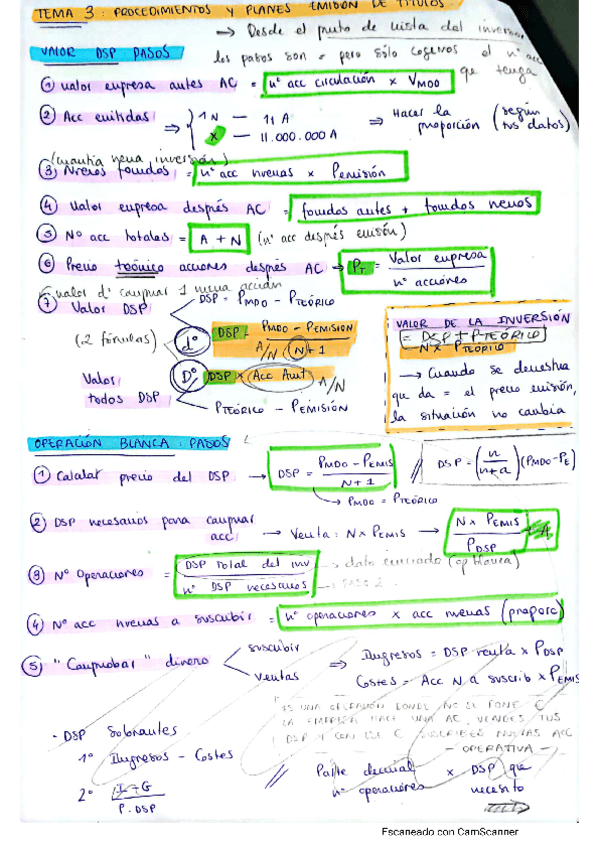 TEMA 3: PROCEDIMIENTOS Y PLANES EMISIÓN DE TÍTULOS
→ Desde el punto de vista del inversor
los pasos son = pero sólo cogemos el nº acc
que tenga
VALOR DSP PASOS
① Valor empresa antes AC = nº acc circulación x VMDO
② Acc emitidas ⇒ 1 N — 11 A
x — 11.000.000 A
⇒ Hacer la proporción (según tus datos)
(cuantía nueva inversión)
③ Nuevos fondos = nº acc nuevas x Pemisión
④ Valor empresa después AC = fondos antes + fondos nuevos
⑤ Nº acc totales = A + N (nº acc después emisión)
⑥ Precio teórico acciones después AC → PT = Valor empresa / nº acciones
⑦ Valor DSP
DSP = PMDO - PTEÓRICO
(2 fórmulas)
dº DSP = PMDO - PEMISIÓN / A/N N + 1
Valor todos DSP
Dº DSP x Acc Ant A/N
PTEÓRICO - PEMISIÓN
VALOR DE LA INVERSIÓN
= DSP + PTEÓRICO
N x PTEÓRICO
→ Cuando se demuestra
que da = el precio emisión,
la situación no cambia
OPERACIÓN BLANCA: PASOS
① Calcular precio del DSP → DSP = PMDO - PEMIS / N + 1
// DSP = (n / n+a) (PMDO - PE)
→ PMDO = PTEÓRICO
② DSP necesarios para comprar acc → Venta: N x PEMIS → N x PEMIS / PDSP + A
③ Nº Operaciones = DSP total del inv / nº DSP necesarios
→ dato enunciado (op blanca)
→ PASO 2
④ Nº acc nuevas a suscribir = nº operaciones x acc nuevas (proporc)
⑤ "Comprobar" dinero
suscribir
ventas
⇒ Ingresos = DSP venta x PDSP
Costes = Acc N a suscrib x PEMIS
ES UNA OPERACIÓN DONDE NO SE PONE €
LA EMPRESA HACE UNA AC, VENDES TUS
DSP Y CON LOS € SUSCRIBES NUEVAS ACC
- OPERATIVA -
- DSP Sobrantes
1º Ingresos - Costes
2º I - G / P. DSP
// Parte decimal nº operaciones x DSP que necesito
Escaneado con CamScanner